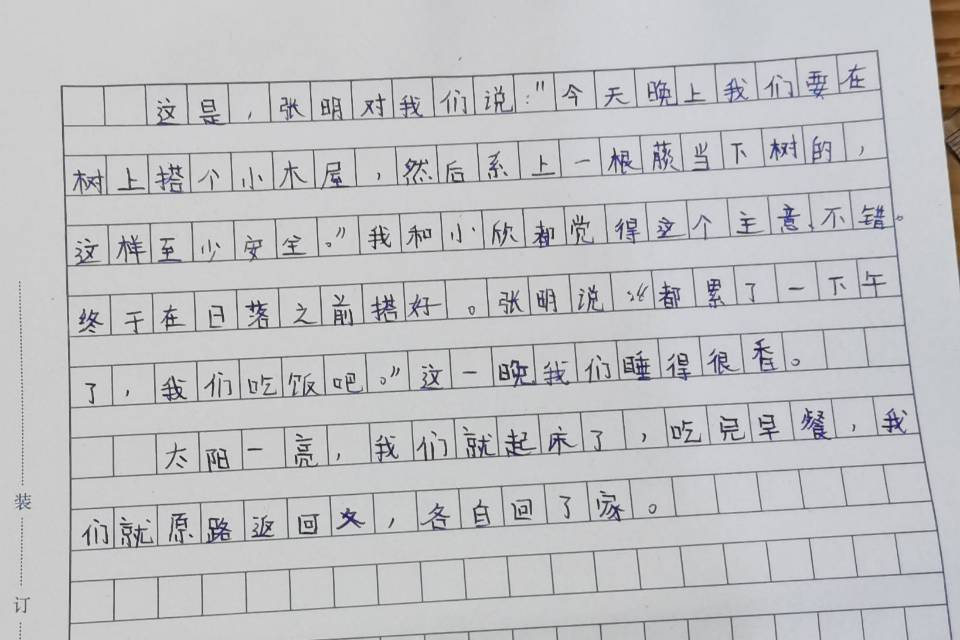 这是，张明对我们说："今天晚上我们要在
树上搭个小木屋，然后系上一根藤当下树的，
这样至少安全。"我和小欣都觉得这个主意不错。
终于在日落之前搭好。张明说："都累了一下午
了，我们吃饭吧。"这一晚我们睡得很香。
太阳一亮，我们就起床了，吃完早餐，我
们就原路返回，各自回了家。
装
订